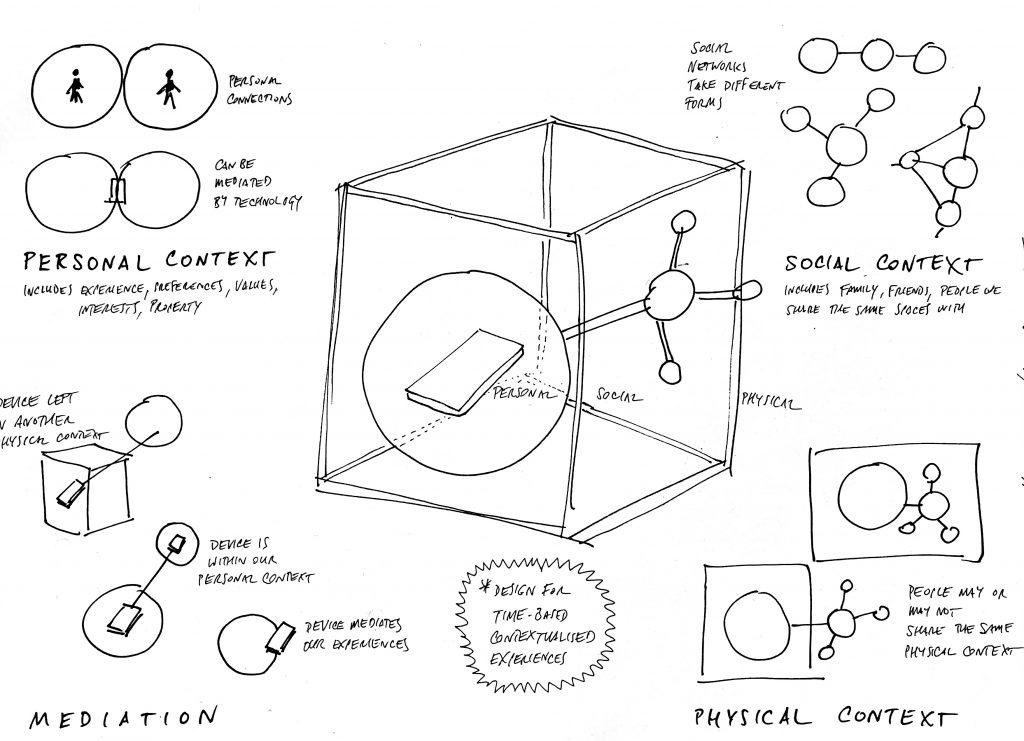 PERSONAL
CONNECTIONS
CAN BE
MEDIATED
BY TECHNOLOGY
PERSONAL CONTEXT
INCLUDES EXPERIENCE, PREFERENCES, VALUES,
INTERESTS, PROPERTY
SOCIAL
NETWORKS
TAKE DIFFERENT
FORMS
SOCIAL CONTEXT
INCLUDES FAMILY, FRIENDS, PEOPLE WE
SHARE THE SAME SPACES WITH
PERSONAL
SOCIAL
PHYSICAL
DEVICE LEFT
N ANOTHER
PHYSICAL CONTEXT
DEVICE IS
WITHIN OUR
PERSONAL CONTEXT
DEVICE MEDIATES
OUR EXPERIENCES
MEDIATION
* DESIGN FOR
TIME-BASED
CONTEXTUALISED
EXPERIENCES
PEOPLE MAY OR
MAY NOT
SHARE THE SAME
PHYSICAL CONTEXT
PHYSICAL CONTEXT